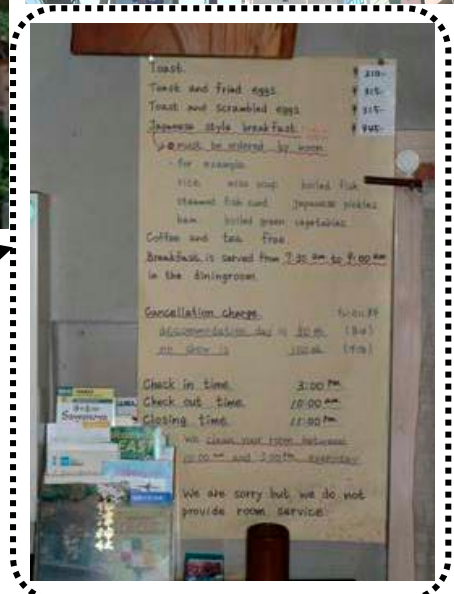 Toast ¥ 210-
Toast and fried eggs ¥ 315-
Toast and scrambled eggs ¥ 315-
Japanese style breakfast ¥ 945-
must be ordered by noon
for example
rice miso soup boiled fish
steamed fish curd Japanese pickles
ham boiled green vegetables
Coffee and tea free
Breakfast is served from 7:30 am to 9:00 am
in the diningroom
Cancellation charge
accommodation day is
no show is
Check in time 3:00 PM
Check out time 10:00 AM
Closing time 11:00 PM
We clean your room between
10:00 am and 3:00 PM everyday
We are sorry but we do not
provide room service